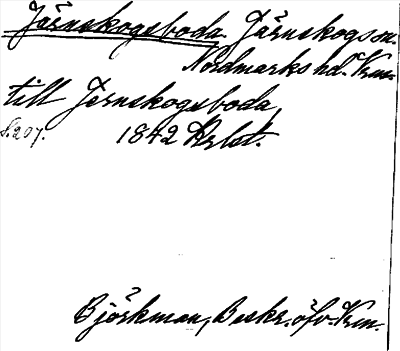 Järnskogsboda Järnskogs sn.
Nordmarks hd. Vrm.
till Jernskogsboda
S. 207. 1842 Hrlst.
Björkman, Beskr. öfv. Vrm.